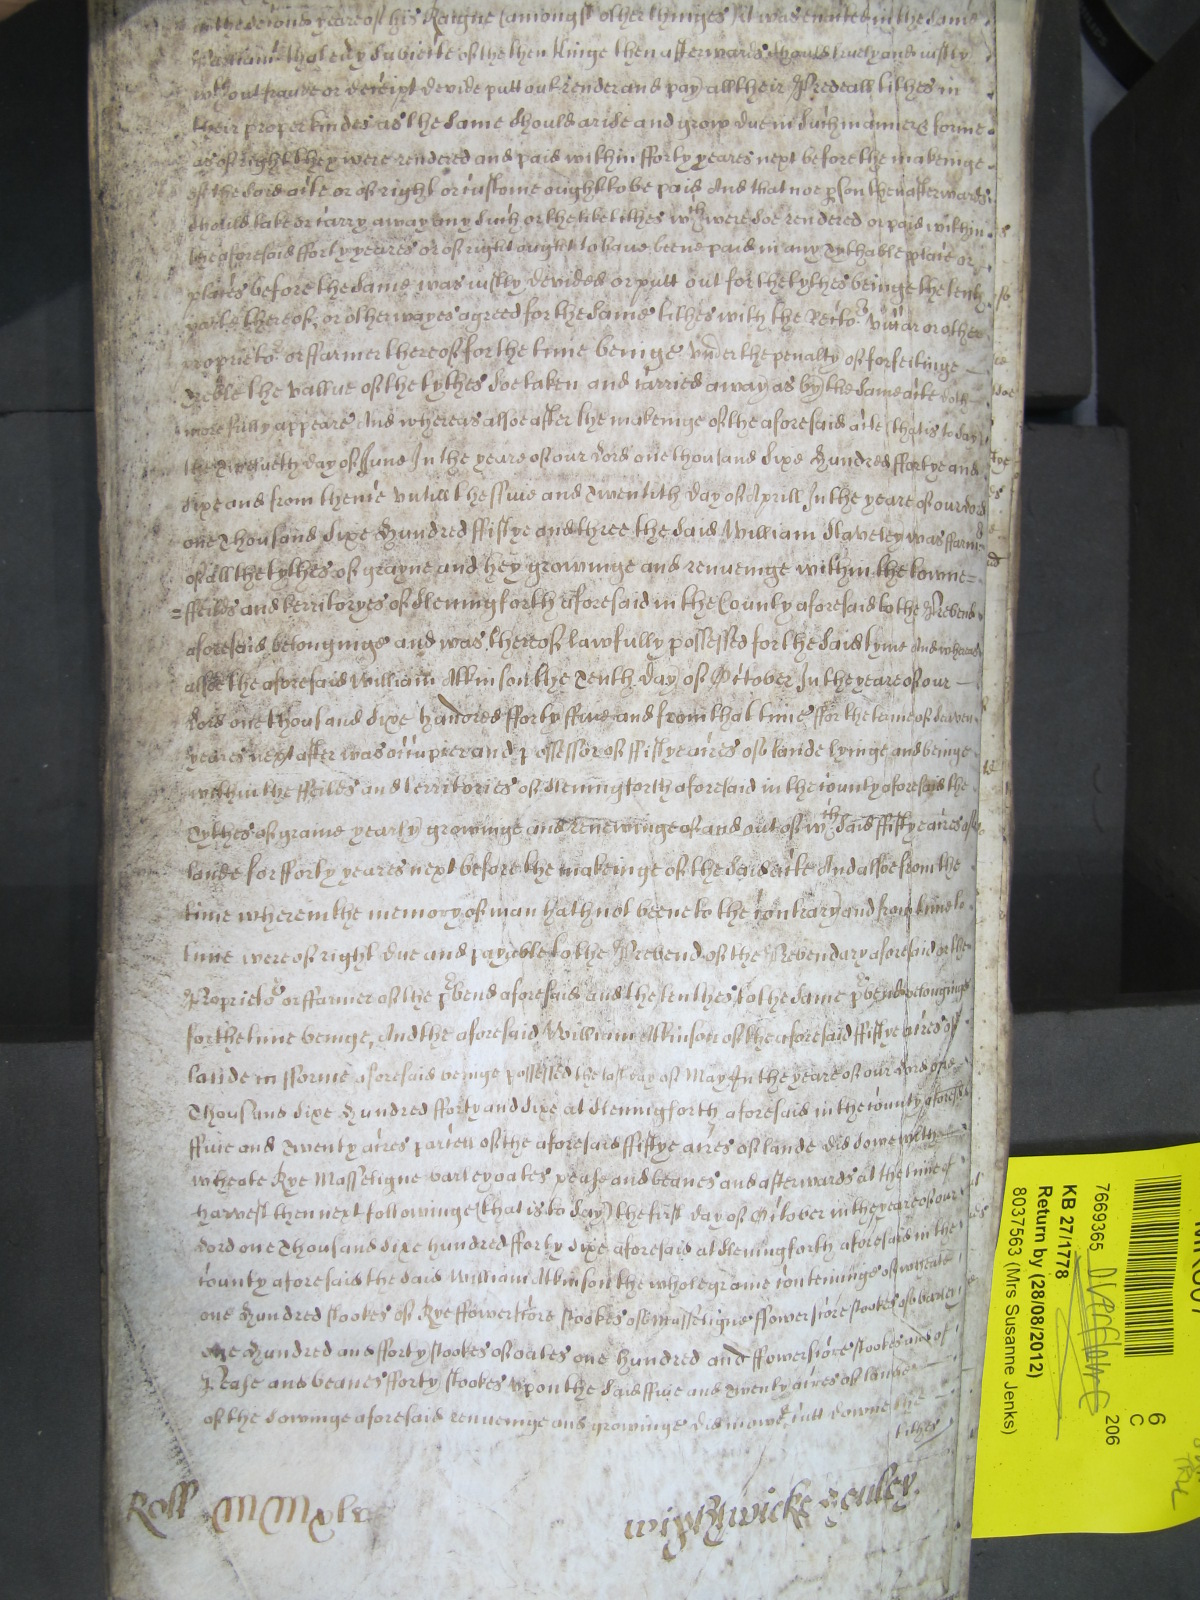 in the second yeare of his Raigne (amongst other thinges) It was enacted in the same
Parliamt that every subiecte of the then Kinge then afterwards should truely and iustly
wthout fraude or deceipt devide putt out render and pay all their Prediall tithes in
their proper kindes as the same should arise and grow due in such manner & forme
as of right they were rendered and paid within fforty yeares next before the makeinge
of the said acte or of right or custome ought to be paid And that noe pson then afterwards
should take or carry away any such or the like tithes wch were soe rendered or paid within
the aforesaid fforty yeares or of right ought to have beene paid in any Tythable place or
places before the same was iustly devided or putt out for the tythes beinge the tenth
parte thereof, or otherwayes agreed for the same tithes with the Rector viccar or other
Proprietor or ffarmer thereof for the time beinge vnder the penalty of forfeitinge
Treble the vallue of the tythes soe taken and carried away as by the same acte doth
more fully appeare And whereas alsoe after the makeinge of the aforesaid acte (that is to say)
the day of June In the yeare of our Lord one thousand sixe Hundred ffortye and
sixe and from thence vntill the ffiue and Twentith day of Aprill In the yeare of our Lord
one Thousand sixe Hundred ffiftye and three the said William Slaveley was ffarmr
of all the tythes of grayne and hey growinge and renueinge within the towne=
=ffeilds and territoryes of Sleningforth aforesaid in the County aforesaid to the Prebend
aforesaid belonginge and was thereof lawfully possessed for the said tyme And whereas
alsoe the aforesaid William Atkinson the Tenth day of October In the yeare of our
Lord one thousand sixe hundred fforty ffiue and from that time ffor the terme of seaven
yeares next after was occupier and possessor of ffiftye acres of lande lyinge and beinge
within the ffeilds and territories of Sleningforth aforesaid in the county aforesaid the
Tythes of graine yearly growinge and renewinge of and out of wch said ffiftye acres of
lande for fforty yeares next before the makeinge of the said acte And alsoe from the
time wherein the memory of man hath not beene to the contrary and from time to
time were of right due and payeable to the Prebend of the Prebendary aforesaid or the
Proprietor or ffarmer of the pbend aforesaid and the tenthes to the same pbend belonginge
for the time beinge, And the aforesaid William Atkinson of the aforesaid ffiftye acres of
lande in fforme aforesaid beinge possessed the last day of May In the yeare of our Lord one
Thousand sixe Hundred fforty and sixe at Sleningforth aforesaid in the county aforesaid
ffiue and Twenty acres parcell of the aforesaid ffiftye acres of lande did sowe with
wheate Rye Masseligne barley oates pease and beanes and afterwards at the time of
harvest then next followinge (that is to say) the first day of October in the yeare of our
Lord one Thousand sixe hundred fforty sixe aforesaid at Sleningforth aforesaid in the
county aforesaid the said William Atkinson the whole graine conteininge of wheate
one Hundred stookes of Rye ffowerscore stookes of Masseligne ffowerscore stookes of barley
one Hundred and fforty stookes of oates one hundred and ffowerscore stookes and of
Pease and beanes fforty stookes vpon the said ffiue and Twenty acres of lande
of the sowinge aforesaid renueinge and growinge did mowe cutt downe the
tithes
Roll MMxlv
Wightwicke Henley
7669365
KB 27/1778
Return by (28/08/2012)
8037563 (Mrs Susanne Jenks)
6
C
206